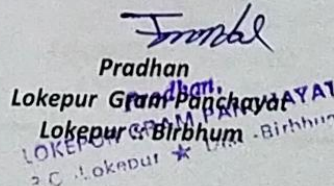 Pradhan
Lokepur Gram Panchayat
Lokepur :: Birbhum
Pradhan
LOKEPUR GRAM PANCHAYAT
Lokepur ★ Birbhum